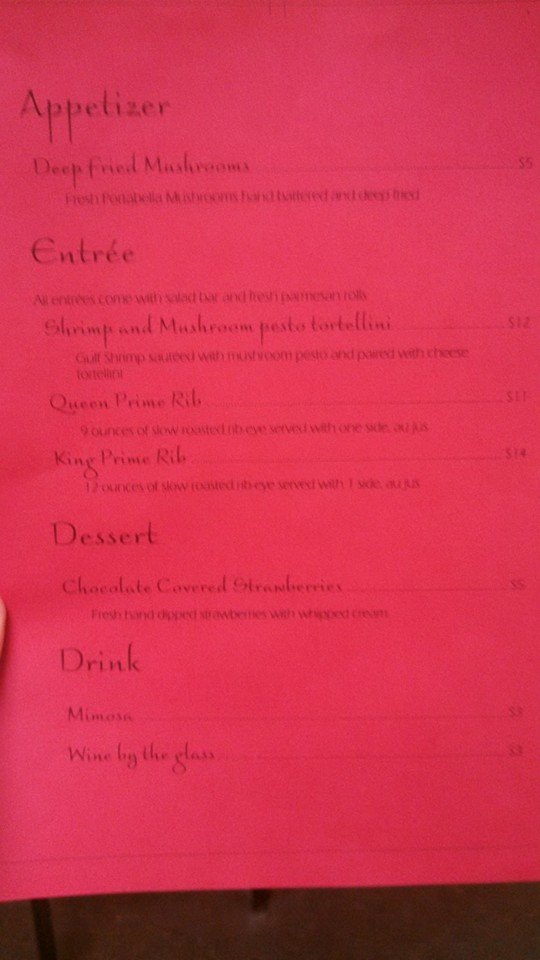 Appetizer
Deep Fried Mushrooms $5
Fresh Portabella Mushrooms hand battered and deep fried
Entrée
All entrées come with salad bar and fresh parmesan rolls
Shrimp and Mushroom pesto tortellini $12
Gulf Shrimp sauteed with mushroom pesto and paired with cheese
tortellini
Queen Prime Rib $11
9 ounces of slow roasted rib-eye served with one side, au jus
King Prime Rib $14
12 ounces of slow roasted rib-eye served with 1 side, au jus
Dessert
Chocolate Covered Strawberries $5
Fresh hand dipped strawberries with whipped cream
Drink
Mimosa $3
Wine by the glass